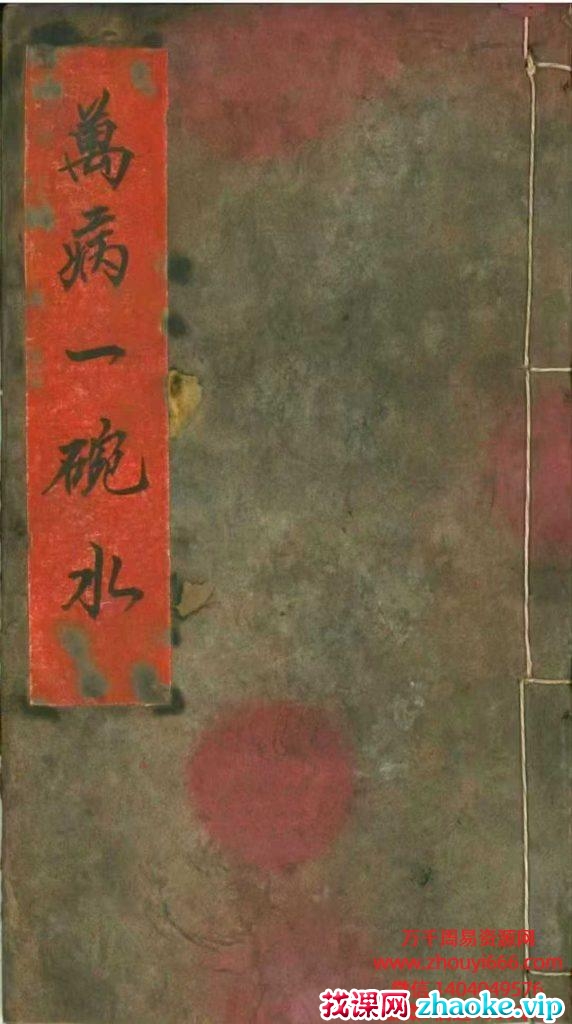 萬病一碗水
万千周易资源网
www.zhouyi666.com
微信 1404049576
找课网zhaoke.vip